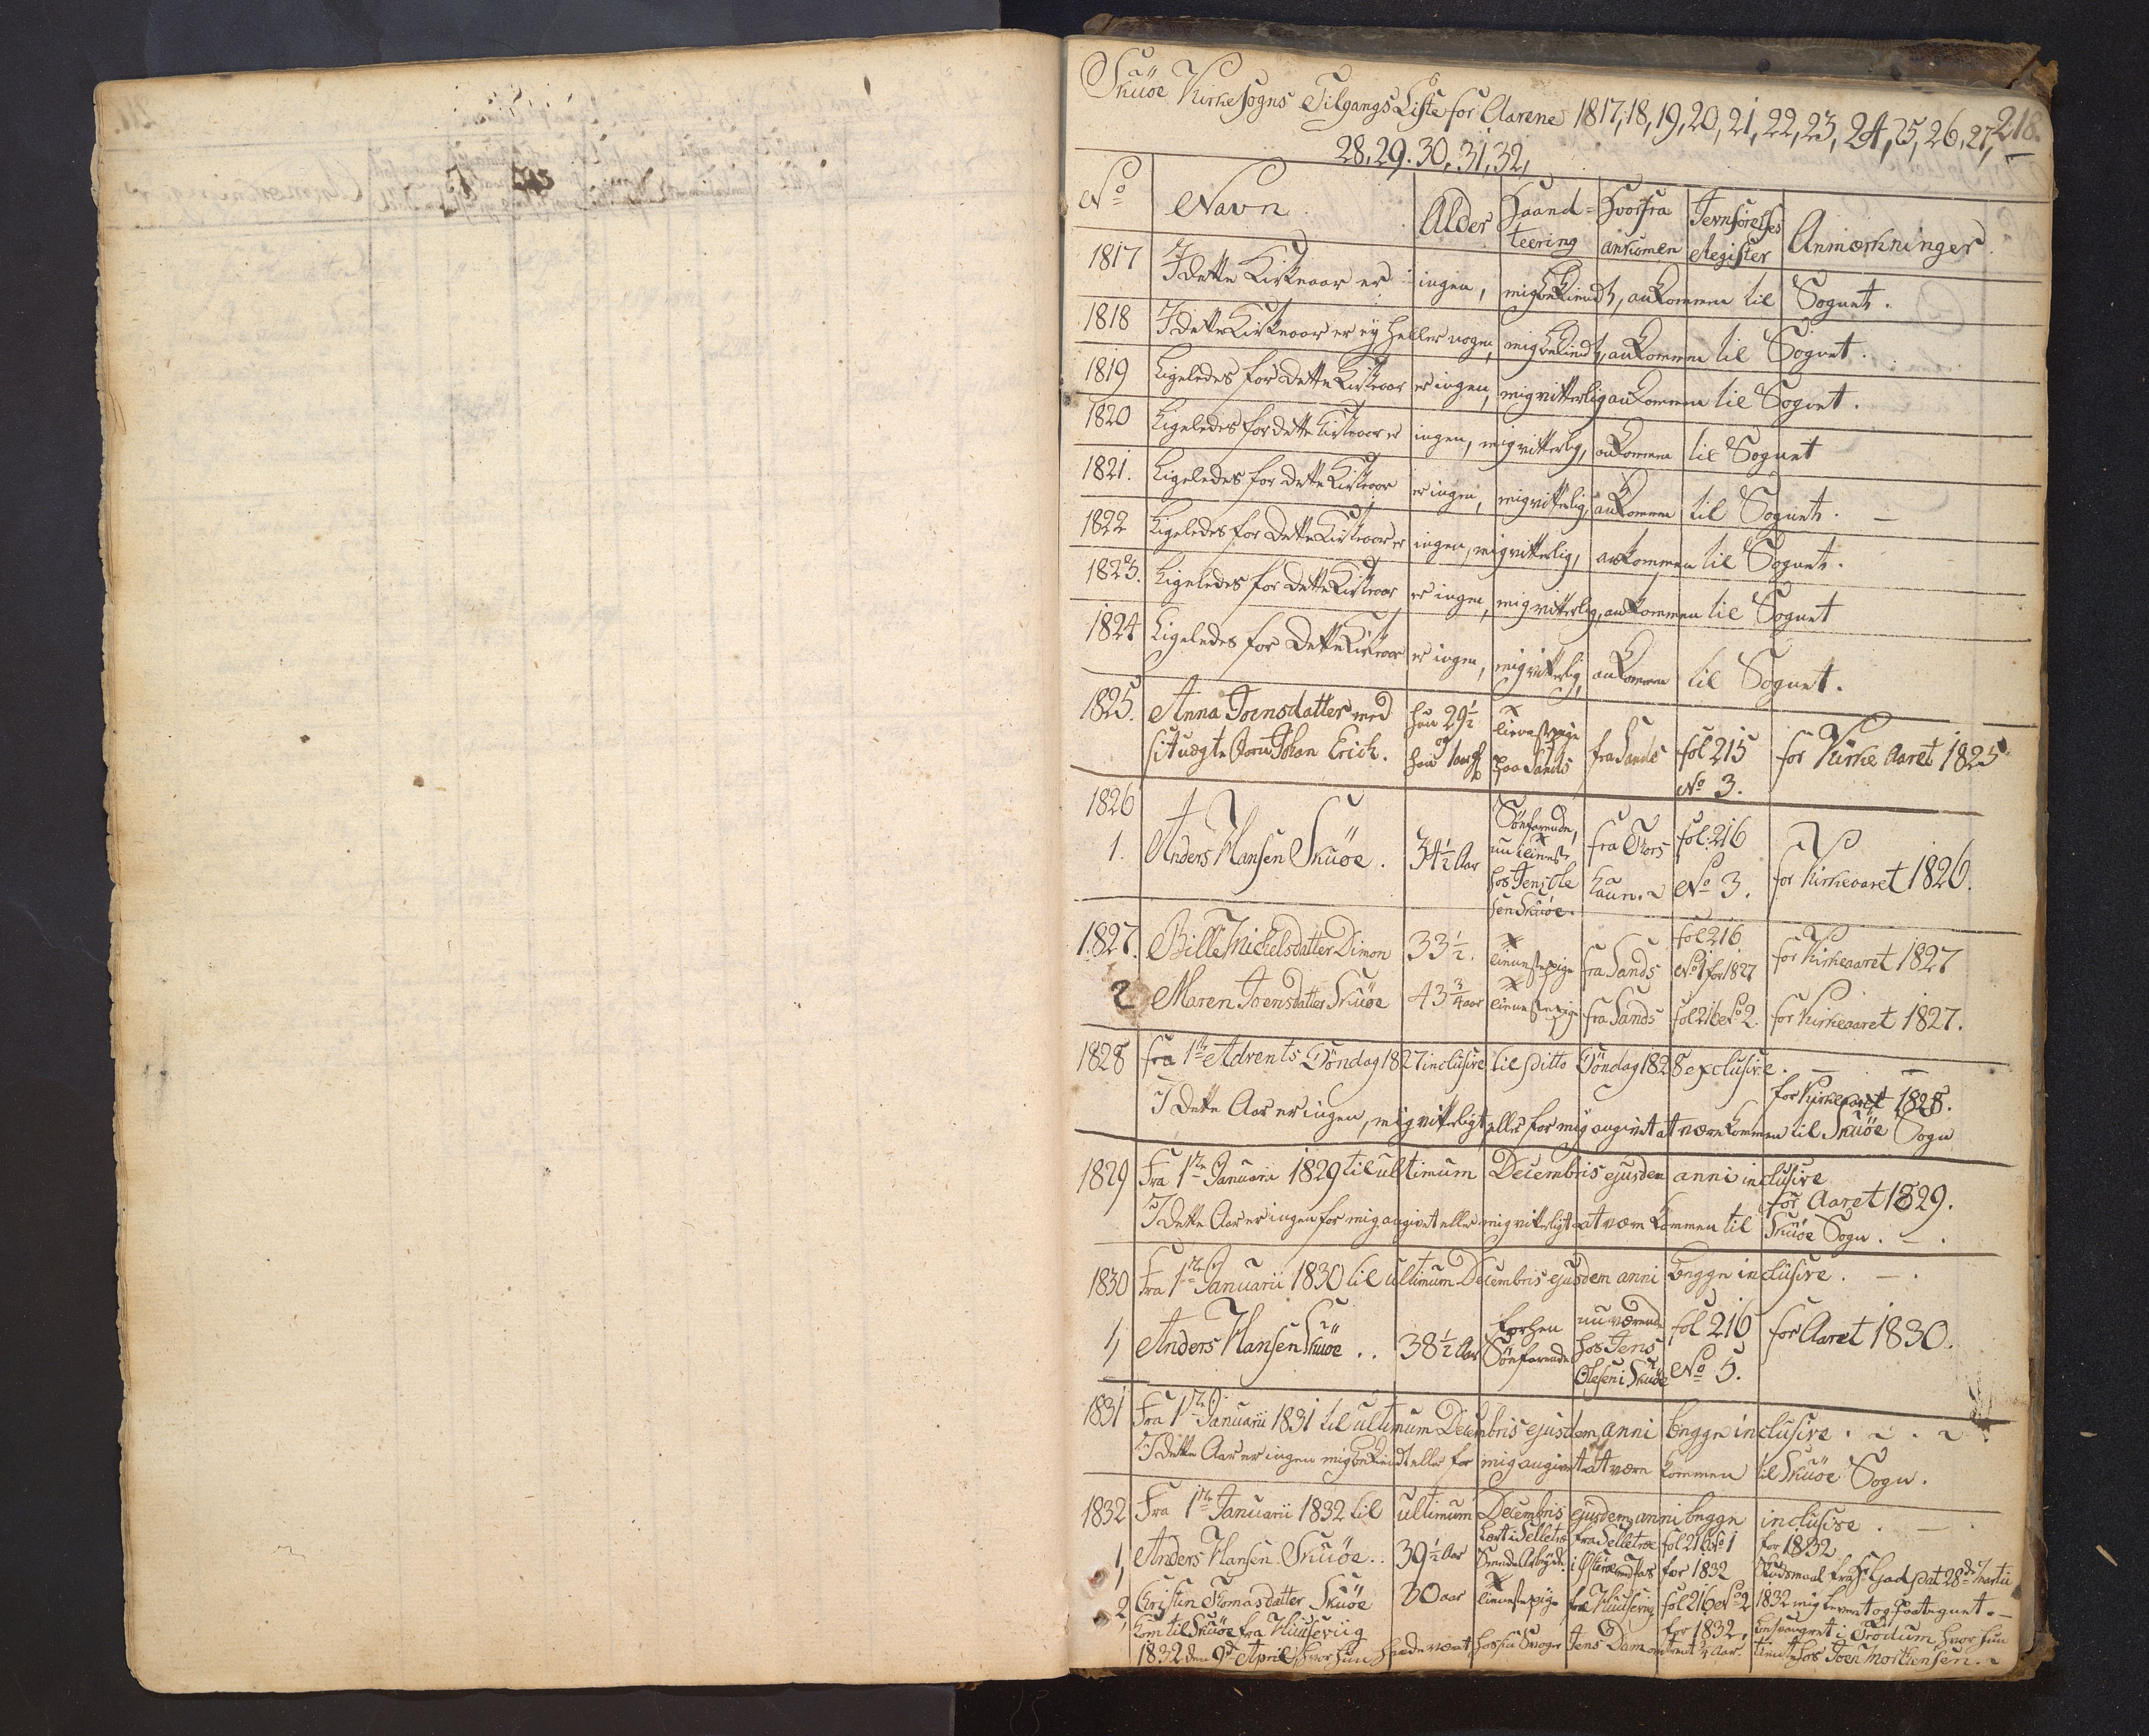 218.
Skuöe Kirkesogns Tilgangs Liste for Aarene 1817, 18, 19, 20, 21, 22, 23, 24, 25, 26, 27,
28, 29. 30, 31, 32,
No Navn Alder Haand= teering Hvorfra ankomen Jevnförelses Register Anmærkninger
1817 I dette Kirkeaar er ingen, mig bekiendt, ankommen til Sognet.
1818 I dette Kirkeaar er ey heller nogen, mig bekiendt, ankommen til Sognet.
1819 Ligeledes for dette Kirkeaar er ingen, mig vitterlig ankommen til Sognet.
1820 Ligeledes for dette Kirkeaar er ingen, mig vitterlig, ankommen til Sognet
1821. Ligeledes for dette Kirkeaar er ingen, mig vitterlig, ankommen til Sognet. —
1822 Ligeledes for dette Kirkeaar er ingen, mig vitterlig, ankommen til Sognet.
1823. Ligeledes for dette Kirkeaar er ingen, mig vitterlig, ankommen til Sognet
1824 Ligeledes for dette Kirkeaar er ingen, mig vitterlig, ankommen til Sognet.
1825. Anna Joensdatter med hun 29½ tienestepige fra Sands fol 215 for Kirke Aaret 1825
sit uægte Barn Johan Erich. paa Sands No 3.
1826
1. Anders Hansen Skuöe. 34½ Aar Sönfarende, nu tienest. hos Jens Ole sen Skuöe. fra Thors haun. fol: 216 No 3. for Kirkeaaret 1826.
1827. Bille Michelsdatter Dimon 33½. tienestepige fra Sands fol 216 No 1 for 1827 for Kirkeaaret 1827
2 Maren Joensdatter Skuöe 43¾ aar tienestepige fra Sands fol 216 No 2. for Kirkeaaret 1827.
1828 fra 1ste Advents Söndag 1827 inclusive til ditto Söndag 1828 exclusive. —
for Kirkeaaret 1828.
I dette Aar er ingen, mig vitterligt, eller for mig angivet at være kommen til Skuöe Sogn
1829 Fra 1ste Januarii 1829 til ultimum Decembris ejusdem anni inclusive
for Aaret 1829.
I dette Aar er ingen for mig angivet eller mig vitterligt at være kommen til Skuöe Sogn. —.
1830 Fra 1ste Januarii 1830 til ultimum Decembris ejusdem anni begge inclusive. —.
1, Anders Hansen Skuöe.. 38½ Aar Forhen Sönfarende nu værende hos Jens Olesen i Skuöe fol 216 No 5. for Aaret 1830.
1831 Fra 1ste Januarii 1831 til ultimum Decembris ejusdem anni begge inclusive.
I dette Aar er ingen mig bekiendt eller for mig angivet at være kommen til Skuöe Sogn.
1832 Fra 1ste Januarii 1832 til ultimum Decembris ejusdem anni begge inclusive. —
1, Anders Hansen Skuöe.. 39½ Aar fra Selletræ fol 216 No 1 for 1832 for 1832
2, Christen Thomasdatter Skuöe 30 aar tienestepige fra Huusevig fol 216 No 2 for 1832, 1832 mig levert og paategnet. —
kom til Skuöe fra Huusevig
1832 den 9de April, hvor hun havde været hos sin Svoger Jens Dam omtrent ¾ Aar. tiente hos Joen Mortensen.